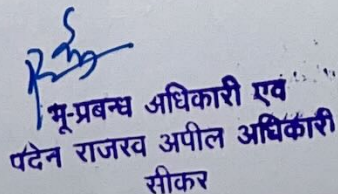 भू-प्रबन्ध अधिकारी एवं
पदेन राजरव अपील अधिकारी
सीकर